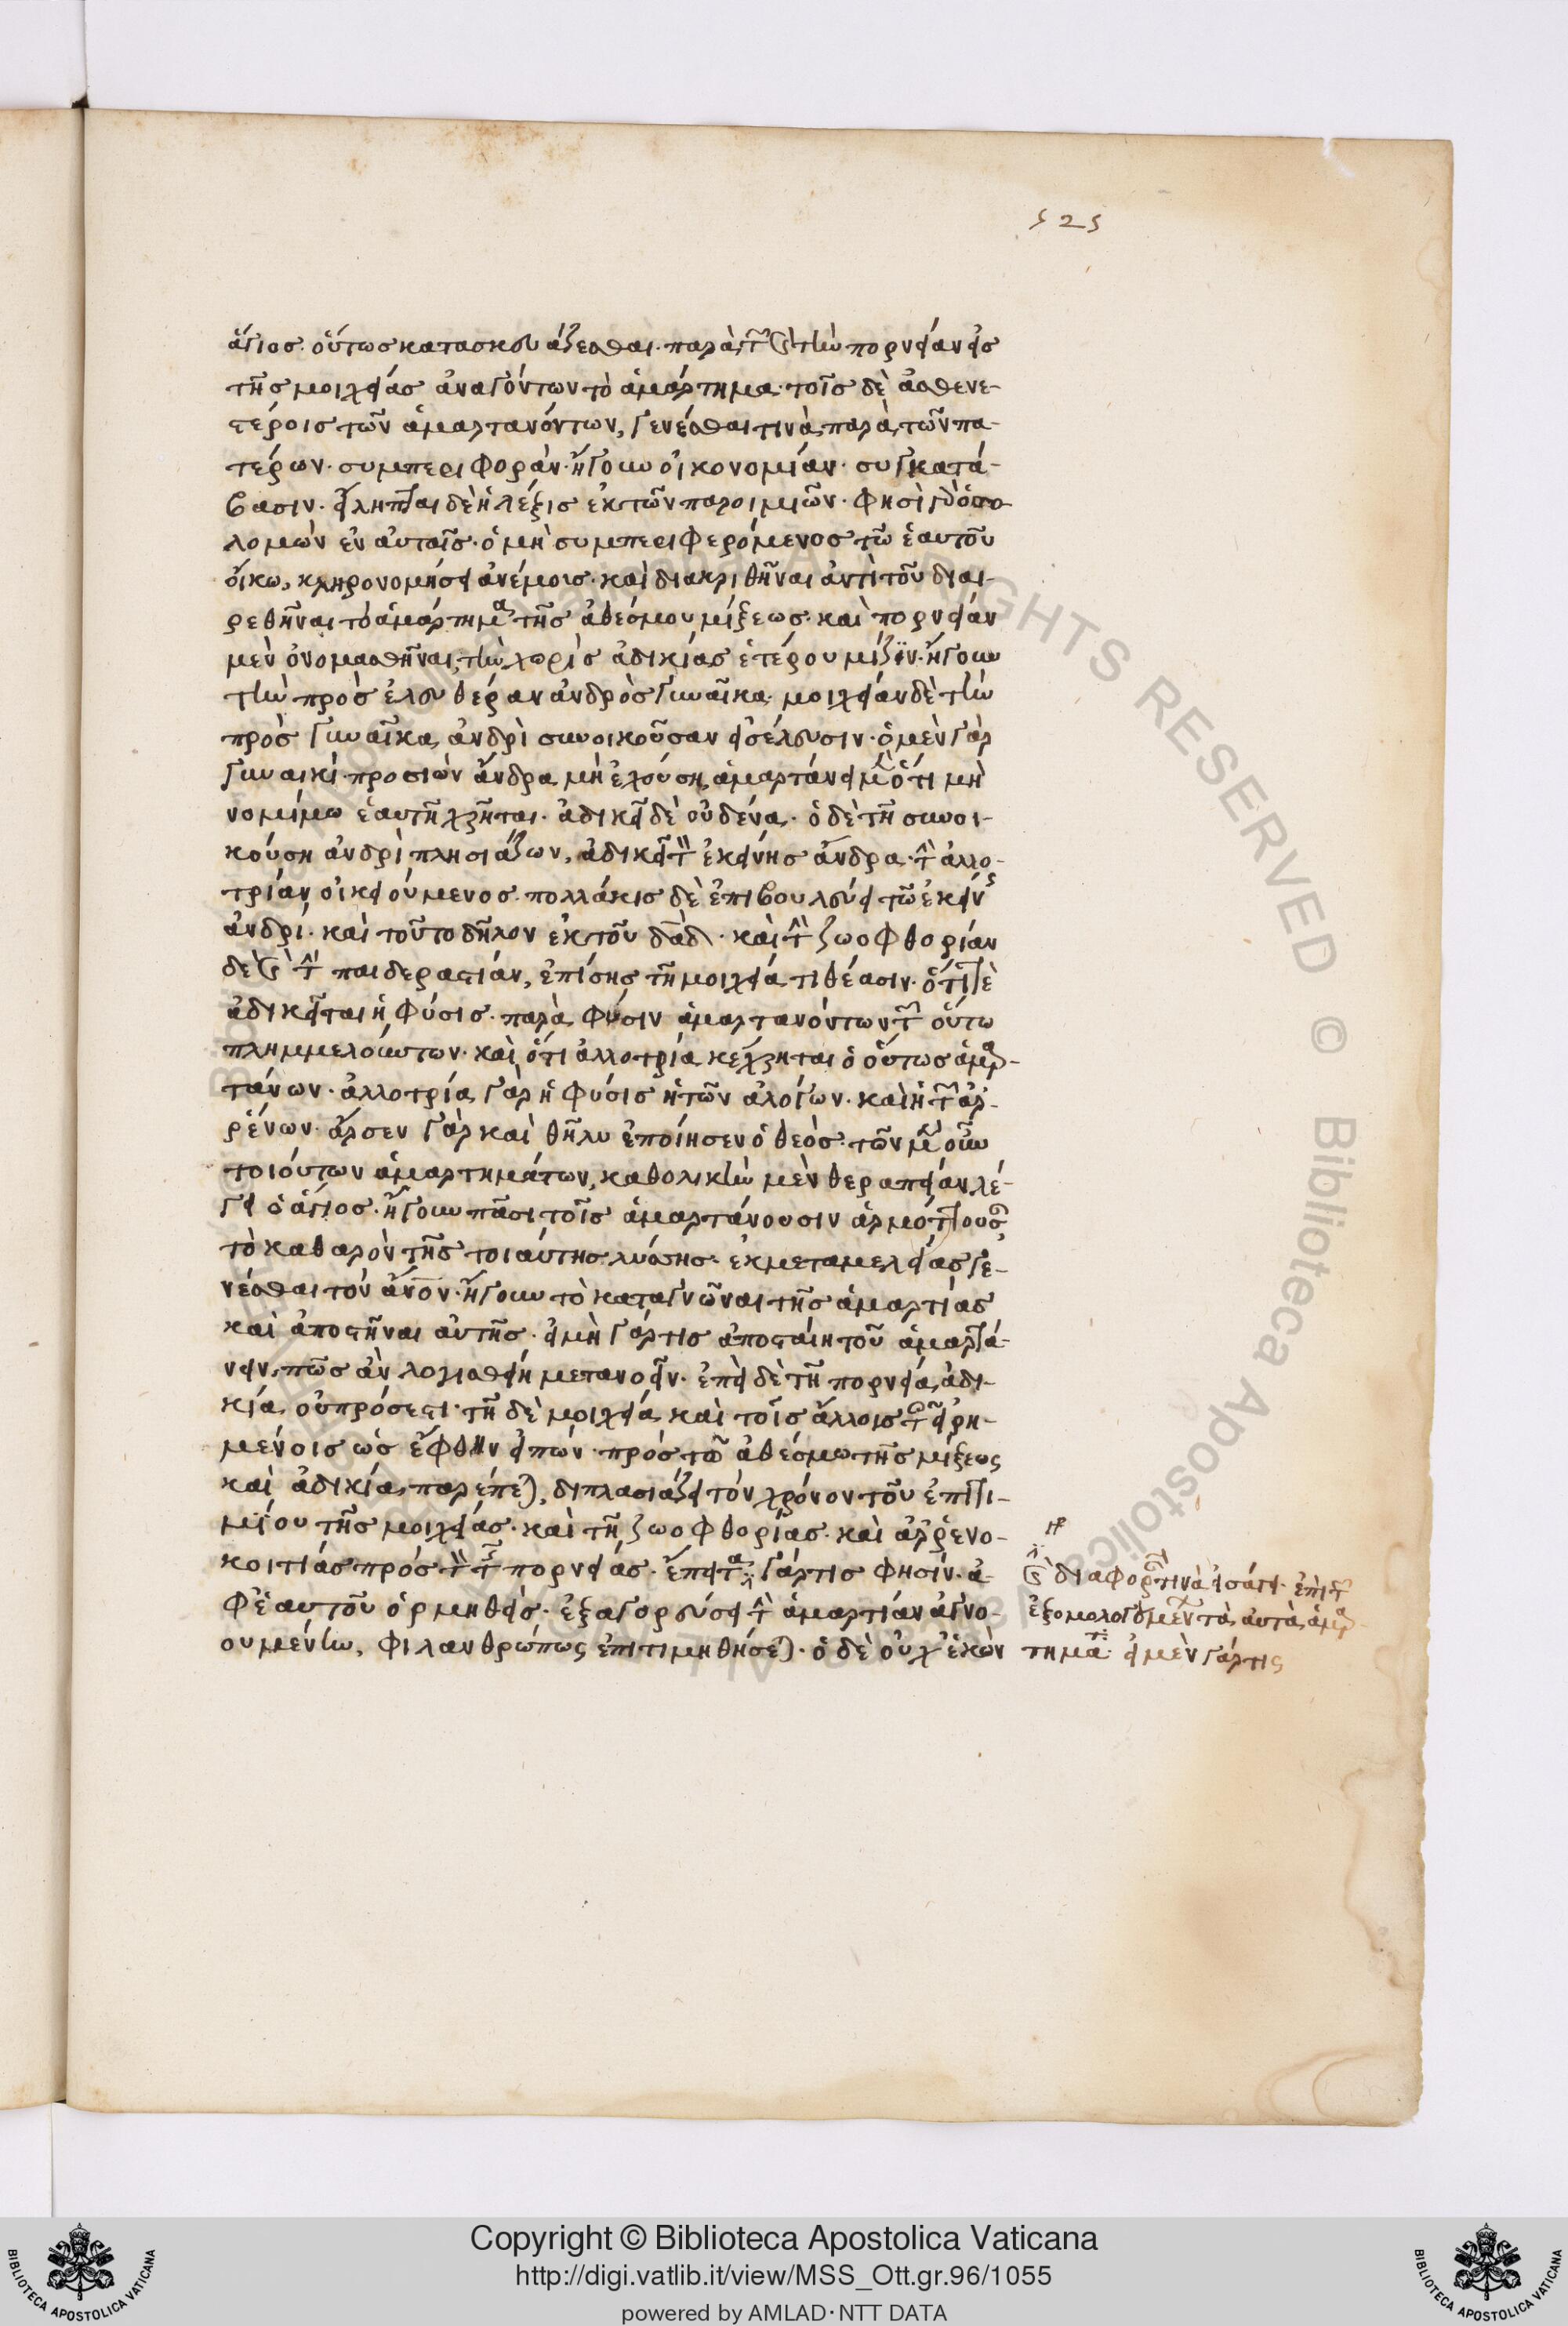 525
ἅγιος. οὕτως κατασκευάζεσθαι. παρὰ τῶν καὶ τὴν πορνείαν εἰς
τῆς μοιχείας ἀναγόντων τὸ ἁμάρτημα. τοῖς δὲ ἀσθενε-
στέροις τῶν ἁμαρτανόντων, γενέσθαι τινὰ παρὰ τῶν πα-
τέρων. συμπεριφοράν. ἤγουν οἰκονομίαν. συγκατά-
βασιν. εἴληπται δὲ ἡ λέξις ἐκ τῶν παροιμιῶν. φησὶ γὰρ ὁ σο-
λομὼν ἐν αὐταῖς. ὁ μὴ συμπεριφερόμενος τῶ ἑαυτοῦ
οἴκω, κληρονομήσει ἀνέμοις. καὶ διακριθῆναι ἀντὶ τοῦ διαι-
ρεθῆναι τὸ ἁμάρτημα τῆς ἀθέσμου μίξεως. καὶ πορνείαν
μὲν ὀνομασθῆναι, τὴν χωρὶς ἀδικίας ἑτέρου μίξιν. ἤγουν
τὴν πρὸς ἐλευθέραν ἀνδρὸς γυναῖκα. μοιχείαν δὲ τὴν
πρὸς γυναῖκα ἀνδρὶ συνοικοῦσαν εἰσέλευσιν. ὁ μὲν γὰρ
γυναικὶ προσιὼν ἄνδρα μὴ ἐχούση, ἁμαρτάνει μὲν ὅτι μὴ
νομίμω ἑαυτῆ χρῆται. ἀδικεῖ δὲ οὐδένα. ὁ δὲ τῆ συνοι-
κούση ἀνδρὶ πλησιάζων, ἀδικεῖ τὸν ἐκείνης ἄνδρα. τὴν ἀλλο-
τρίαν οἰκειούμενος. πολλάκις δὲ ἐπιβουλεύει τῶ ἐκείνης
ἀνδρί. καὶ τοῦτο δῆλον ἐκ τοῦ δαδ. καὶ τὴν ζωοφθορίαν
δὲ καὶ τὴν παιδεραστίαν, ἐπίσης τῆ μοιχεία τιθέασιν. ὅτι τε
ἀδικεῖται ἡ φύσις. παρὰ φύσιν ἁμαρτανόντων τῶν οὕτω
πλημμελούντων. καὶ ὅτι ἀλλοτρία κέχρηται ὁ οὕτως ἁμαρ-
τάνων. ἀλλοτρία γὰρ ἡ φύσις ἡ τῶν ἀλόγων. καὶ ἡ τῶν ἀρ-
ρένων. ἄρσεν γὰρ καὶ θῆλυ ἐποίησεν ὁ θεός. τῶν μὲν οὖν
τοιούτων ἁμαρτημάτων, καθολικὴν μὲν θεραπείαν λέ-
γει ὁ ἅγιος. ἤγουν πᾶσι τοῖς ἁμαρτάνουσιν ἁρμόττουσαν
τὸ καθαρὸν τῆς τοιαύτης λύσσης. ἐκ μεταμελείας γε-
νέσθαι τὸν ἄνον. ἤγουν τὸ καταγνῶναι τῆς ἁμαρτίας
καὶ ἀποστῆναι αὐτῆς. εἰ μὴ γάρ τις ἀποσταίη τοῦ ἁμαρτά-
νειν, πῶς ἂν λογισθείη μετανοεῖν. ἐπεὶ δὲ τῆ πορνεία, ἀδι-
κία οὐ πρόσεστι. τῆ δὲ μοιχεία καὶ τοῖς ἄλλοις τοῖς εἰρη-
μένοις ὡς ἔφθην εἰπών. πρὸς τῶ ἀθέσμω τῆς μίξεως
καὶ ἀδικία παρέπεται, διπλασιάζει τὸν χρόνον τοῦ ἐπιτι-
μίου τῆς μοιχείας. καὶ τῆς ζωοφθορίας. καὶ ἀρρενο-
κοιτίας πρὸς τὸν τῆς πορνείας. ἔπειτα γάρ τις φησίν. ἀ-
φ' ἑαυτοῦ ὁρμηθείς. ἐξαγορεύσει τὴν ἁμαρτίαν ἀγνο-
ουμένην, φιλανθρώπως ἐπιτιμηθήσεται. ὁ δὲ οὐχ ἑκὼν
καὶ διαφοράν τινα εἰσάγει. ἐπὶ τῶν
ἐξομολογουμένων τὰ αὐτὰ ἁμαρ-
τήματα. εἰ μὲν γάρ τις
Copyright © Biblioteca Apostolica Vaticana
http://digi.vatlib.it/view/MSS_Ott.gr.96/1055
powered by AMLAD·NTT DATA
BIBLIOTECA APOSTOLICA VATICANA
BIBLIOTECA APOSTOLICA VATICANA